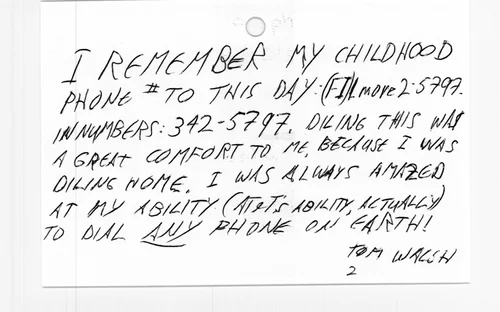 I REMEMBER MY CHILDHOOD
PHONE # TO THIS DAY: (FI)llmore 2-5797.
IN NUMBERS: 342-5797. DILING THIS WAS
A GREAT COMFORT TO ME, BECAUSE I WAS
DILING HOME. I WAS ALWAYS AMAZED
AT MY ABILITY (AT&T'S ABILITY, ACTUALLY)
TO DIAL ANY PHONE ON EARTH!
TOM WALSH
2